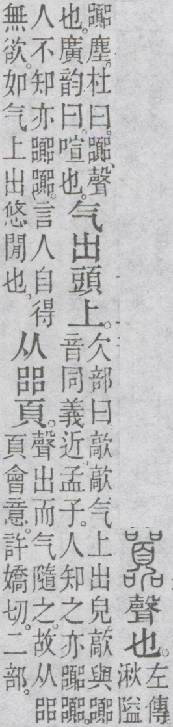 囂聲也。左傳
湫隘
囂塵。杜曰。囂、聲
也。廣韵曰。喧也。
气出頭上。
欠部曰歊歊气上出皃歊與囂
音同義近孟子。人知之亦囂囂。
人不知亦囂囂。言人自得
無欲。如气上出悠閒也。
从㗊頁。
聲出而气隨之。故从㗊
頁會意。許嬌切。二部。